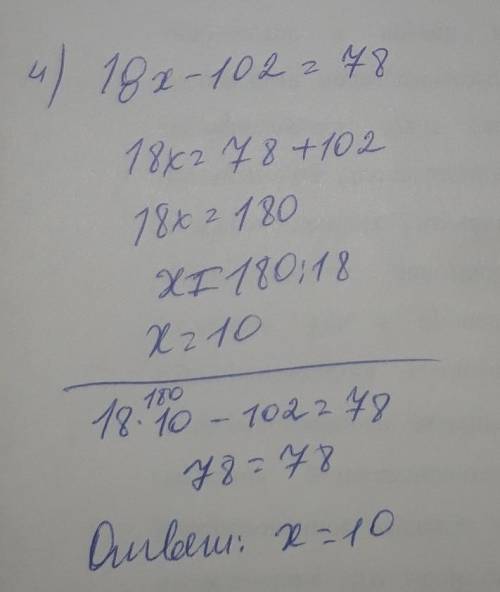 4) 18x - 102 = 78
18x = 78 + 102
18x = 180
x = 180 : 18
x = 10
180
18 · 10 - 102 = 78
78 = 78
Ответ: x = 10